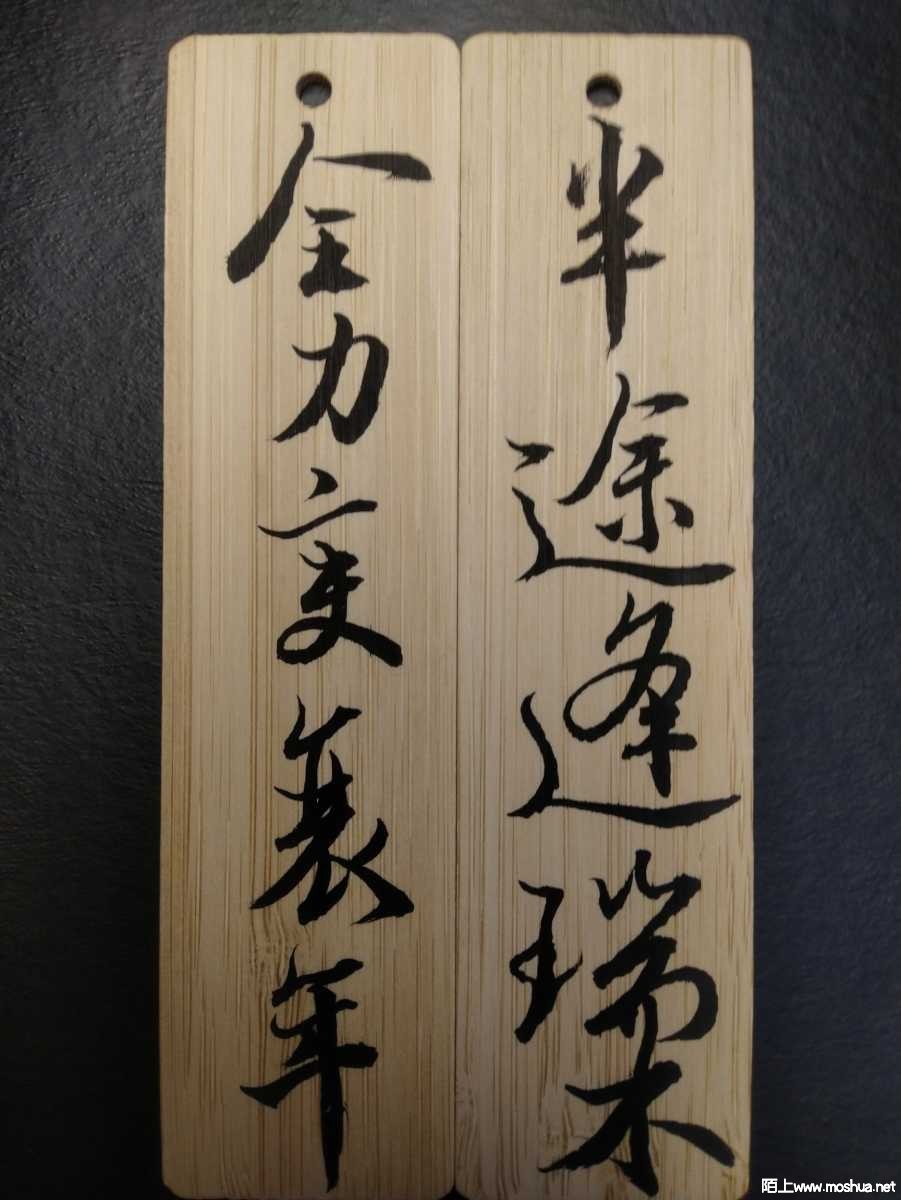 半途逢瑞木
全力变衰年
陌上www.moshua.net